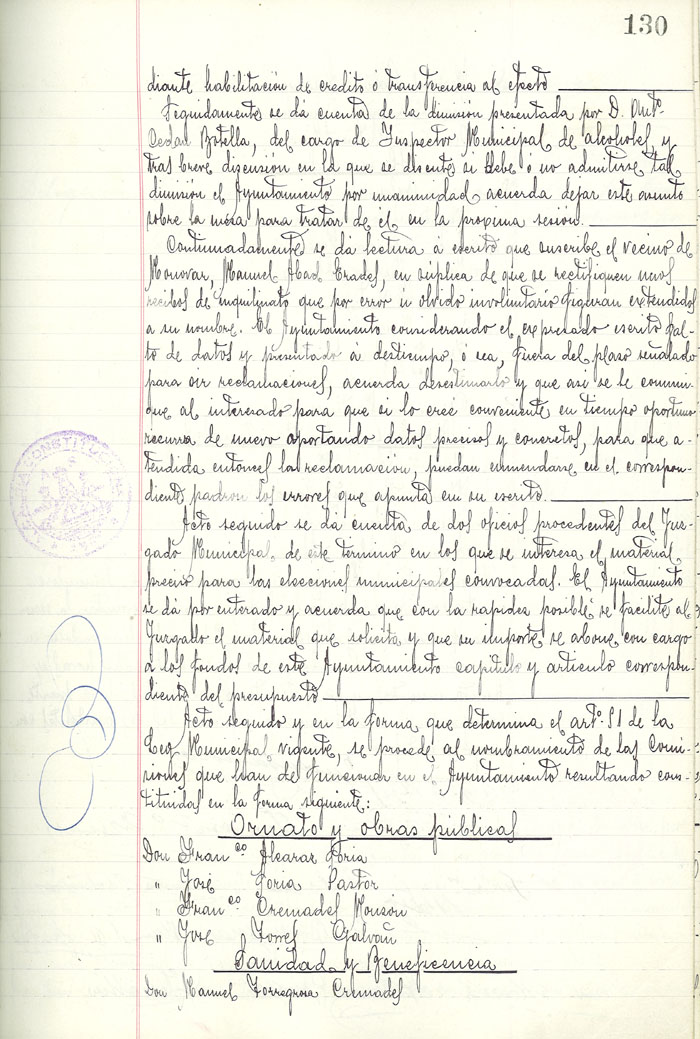 130
diante habilitación de credito ó transferencia al efecto
Seguidamente se dá cuenta de la dimisión presentada por D. Antº.
Botella, del cargo de Inspector Municipal de alcoholes, y
tras breve discusión en la que se discute si debe ó no admitirse tal
dimisión el Ayuntamiento por unanimidad acuerda dejar este asunto
sobre la mesa para tratar de él en la proxima sesión.
Continuadamente se dá lectura á escrito que suscribe el vecino de
Monovar, Manuel Abad Prades, en súplica de que se rectifiquen unos
recibos de inquilinato que por error ú olvido involuntario figuran extendidos
a su nombre. El Ayuntamiento considerando el expresado escrito fal-
to de datos y presentado á destiempo, ó sea, fuera del plaso señalado
para oir reclamaciones, acuerda desestimarlo y que así se le comuni-
que al interesado para que si lo creé conveniente en tiempo oportuno
recurra de nuevo aportando datos precisos y concretos, para que a-
tendida entonces la reclamación, puedan enmendarse en el correspon-
diente padron los errores que apunta em su escrito.
Acto seguido se dá cuenta de dos oficios procedentes del Juz-
gado Municipal de este término en los que se interesa el material
preciso para las elecciones municipales convocadas. El Ayuntamiento
se dá por enterado y acuerda que con la rapidez posible se facilite al
Juzgado el material que solicita y que su importe se abone con cargo
a los fondos de este Ayuntamiento capitulo y articulo correspon-
diente del presupuesto
Acto seguido y en la forma que determina el artº. 51 de la
Ley Municipal vigente, se procede al nombramiento de las Comi-
siones que han de funcionar en el Ayuntamiento resultando cons-
tituidas en la forma siguiente:
Ornato y obras públicas
Don Franco Alcaraz Soria
" José Soria Pastor
" Franco Cremades Monzón
" José Torres Galvañ
Sanidad y Beneficencia
Don Manuel Torregrosa Cremades